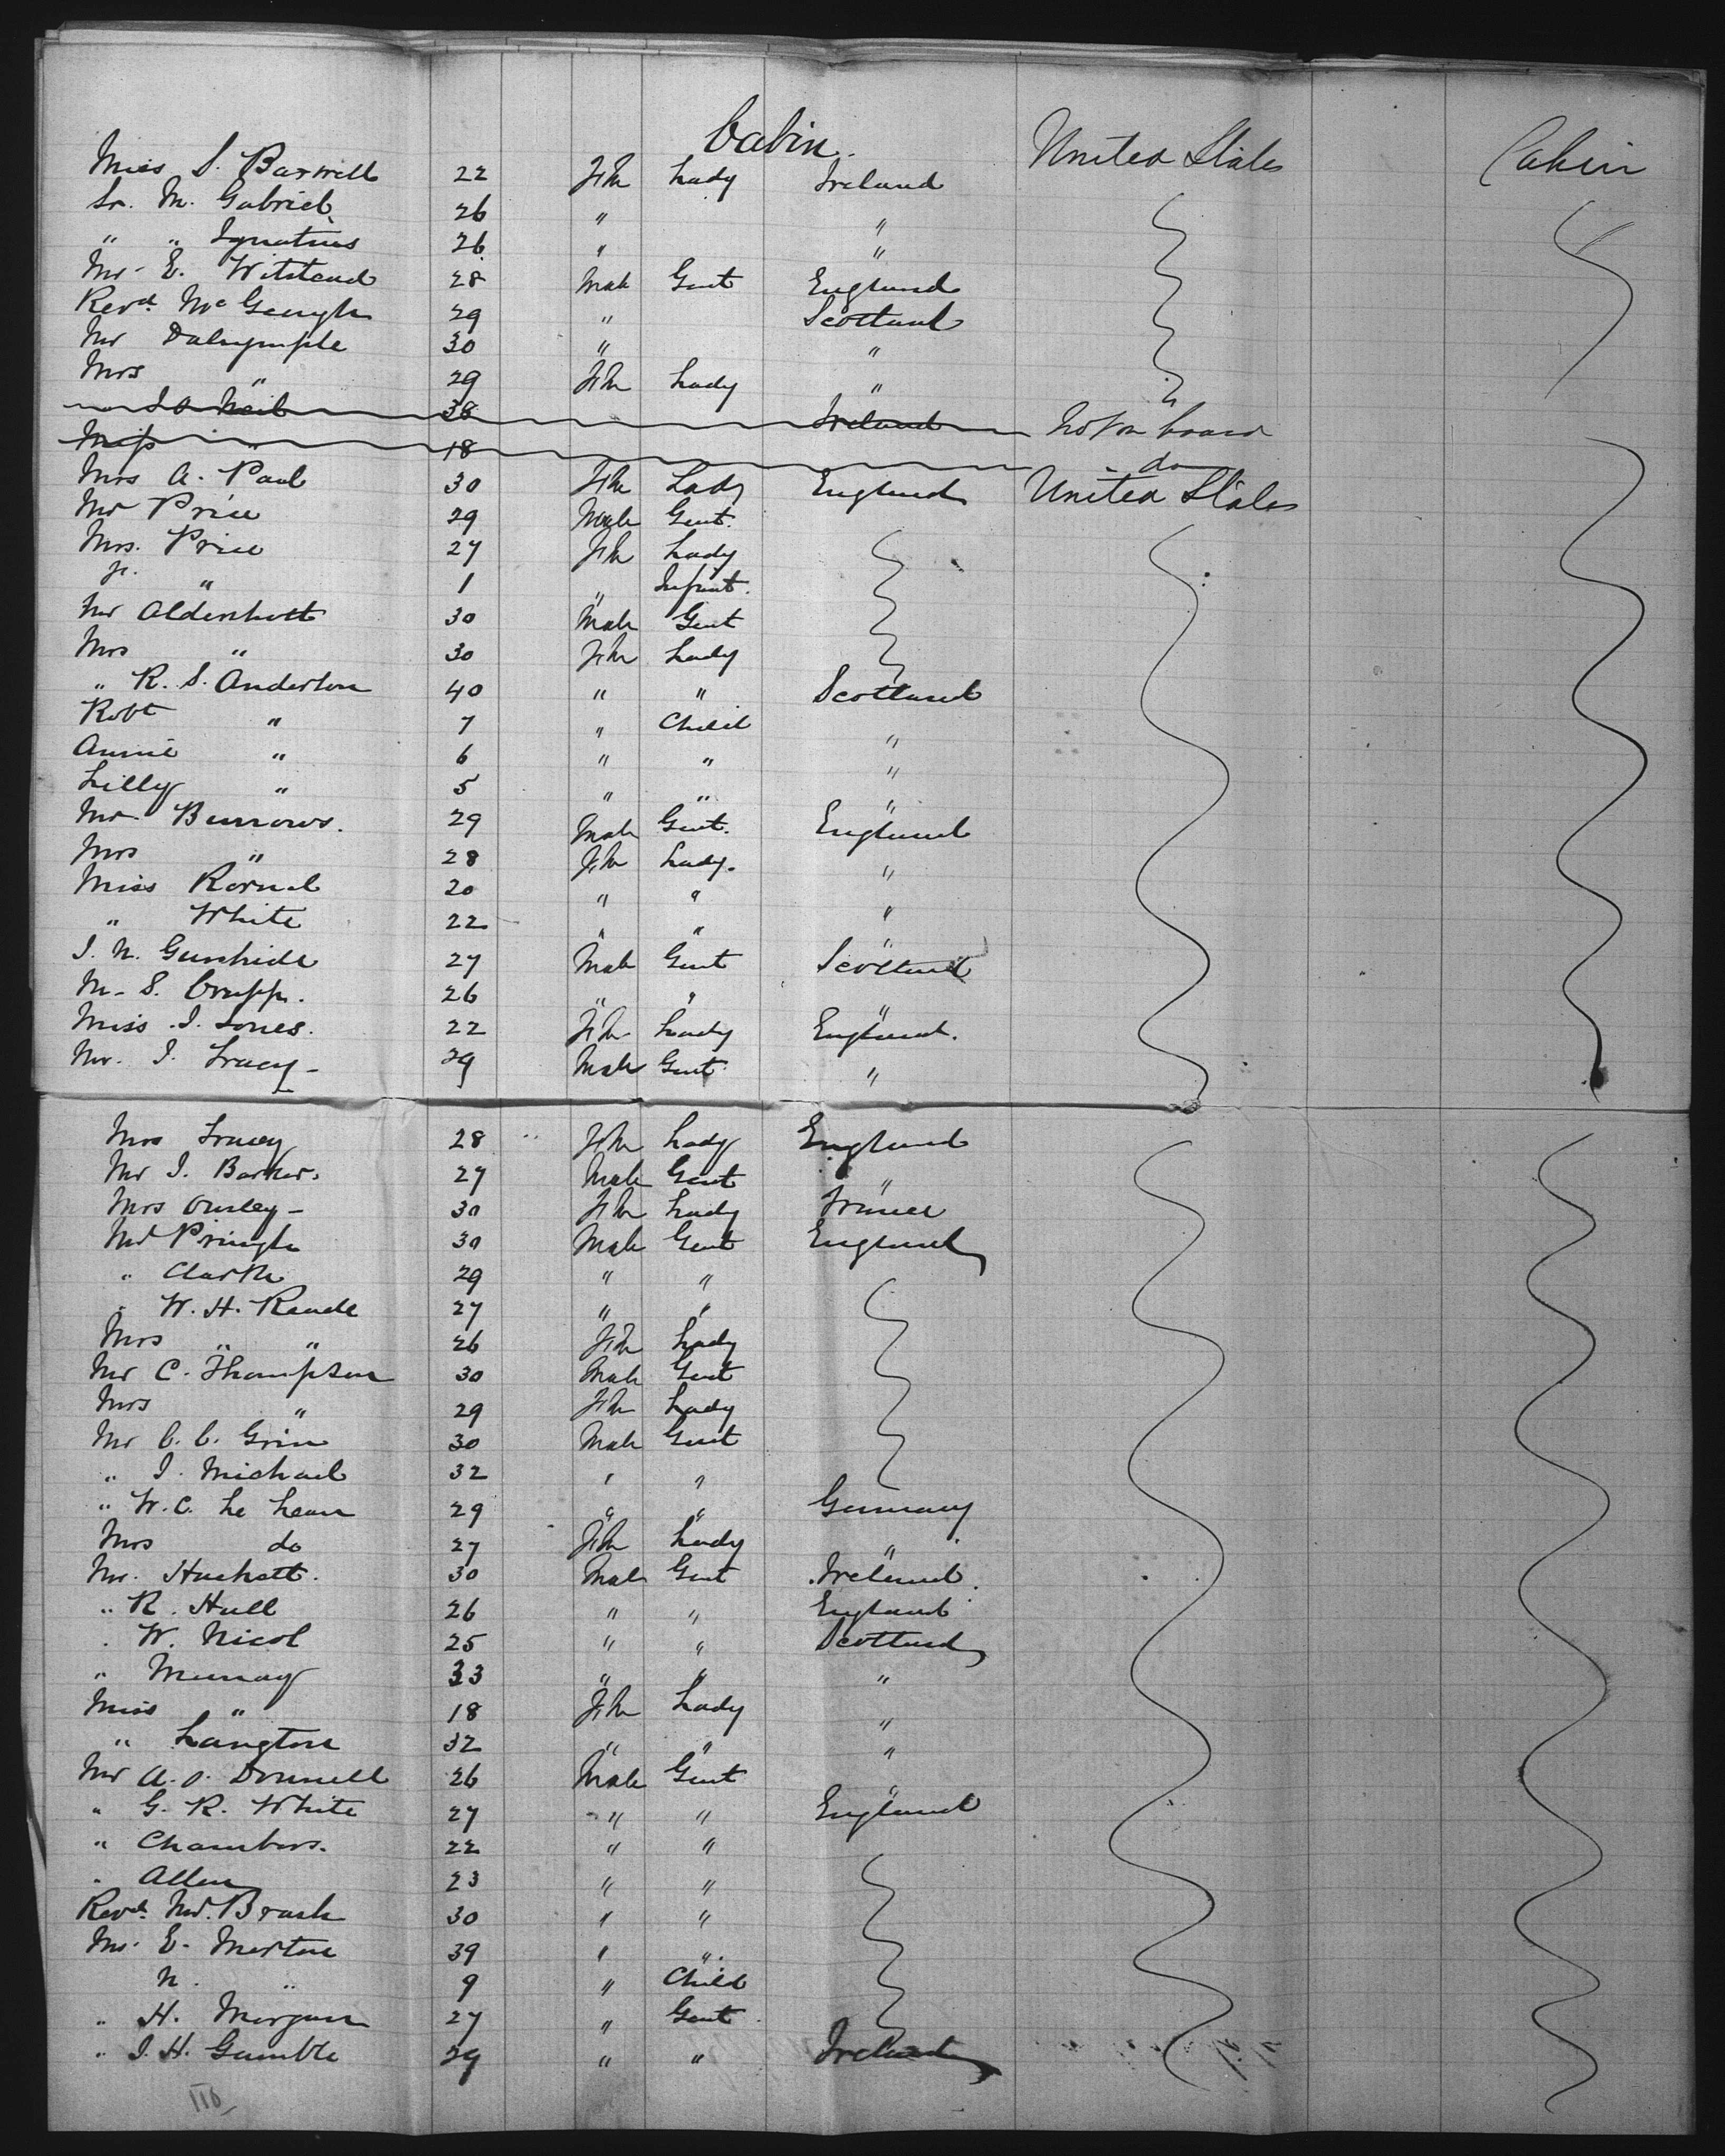 Cabin.
Miss S. Barwill 22 Fm Lady Ireland United States Cabin
Sr. M. Gabriel 26 " "
" " Ignatius 26 " "
Mr. E. Witstead 28 Male Gent England
Revd. McGeugh 29 " Scotland
Mr Dalrymple 30 " "
Mrs " 29 Fm Lady "
J O Neil 38 Ireland Not on board
Miss " 18 do
Mrs A. Paul 30 Fm Lady England United States
Mr Price 29 Male Gent.
Mrs. Price 27 Fm Lady
Jr. " 1 " Infant.
Mr Aldenhott 30 Male Gent
Mrs " 30 Fm Lady
" R. S. Anderton 40 " " Scotland
Robt " 7 " Child "
Annie " 6 " " "
Lilly " 5 " " "
Mr. Burrows. 29 Male Gent. England
Mrs " 28 Fm Lady. "
Miss 20 " " "
" White 22 " " "
J. N. 27 Male Gent Scotland
M. S. 26 " " "
Miss J. Jones. 22 Fm Lady England.
Mr. J. Tracy - 29 Male Gent "
Mrs Tracy 28 Fm Lady England
Mr J. Barker. 27 Male Gent "
Mrs Ousley - 30 Fm Lady France
Mr Pringle 30 Male Gent England
" Clarke 29 " "
" W. H. Reade 27 " "
Mrs " " 26 Fm Lady
Mr C. Thompson 30 Male Gent
Mrs " 29 Fm Lady
Mr C. C. Grin 30 Male Gent
" J. Michael 32 " "
" W. C. Le Lean 29 " " Germany
Mrs do 27 Fm Lady "
Mr. Huchatt. 30 Male Gent Ireland.
" R. Hull 26 " " England
" W. Nicol 25 " " Scotland
" Murray 33 " " "
Miss " 18 Fm Lady "
" Langton 32 " " "
Mr A. O. Donnell 26 Male Gent
" G. R. White 27 " " England
" Chambers. 22 " "
" Allen 23 " "
Revd. Mr. Brash 30 " "
Mr. E. Merton 39 " "
N. " 9 " Child
" H. Morgan 27 " Gent
" J. H. Gamble 29 " " Ireland